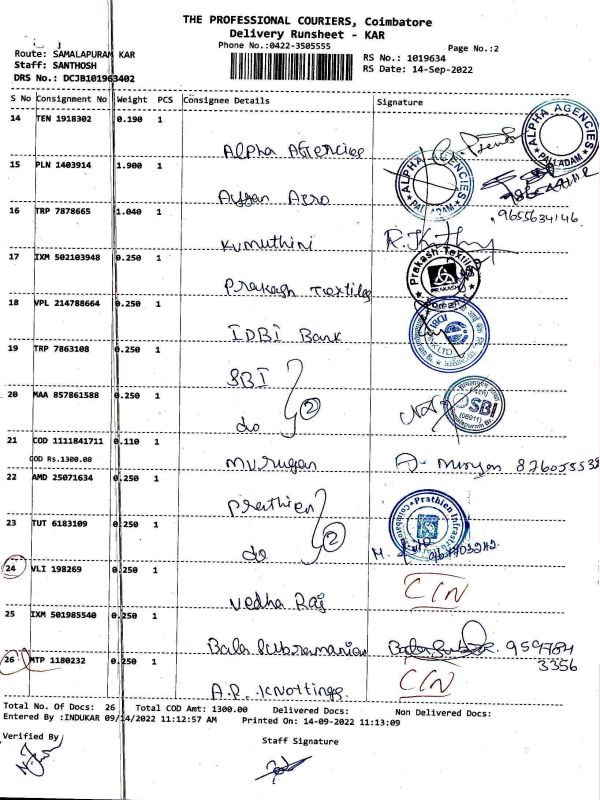 THE PROFESSIONAL COURIERS, Coimbatore
Delivery Runsheet - KAR
Phone No.:0422-3505555
Page No.:2
Route: SAMALAPURAM KAR
Staff: SANTHOSH
DRS No.: DCJB101963402
RS No.: 1019634
RS Date: 14-Sep-2022
S No Consignment No Weight PCS Consignee Details Signature
14 TEN 1918302 0.190 1
Alpha Agencies
ALPHA AGENCIES
PALLADAM
15 PLN 1403914 1.900 1
Ayyan Agro
ALPHA AGENCIES
PALLADAM
9655634146
16 TRP 7878665 1.040 1
Kumuthini
17 IXM 502103948 0.250 1
Prakash Textiles
Prakash-Textiles
PRAKASH
18 VPL 214788664 0.250 1
IDBI Bank
19 TRP 7863108 0.250 1
SBI
20 MAA 857861588 0.250 1
do
2
SBI
21 COD 1111841711 0.110 1
COD Rs.1300.00
Murugan
22 AMD 25071634 0.250 1
Prathien
23 TUT 6183109 0.250 1
do
2
Prathien
24 VLI 198269 0.250 1
Vedha Raj
CIN
25 IXM 501985540 0.250 1
Bala Subramanian
959784
3356
26 MTP 1180232 0.250 1
A.P. Knottings
CIN
Total No. Of Docs: 26 Total COD Amt: 1300.00 Delivered Docs: Non Delivered Docs:
Entered By :INDUKAR 09/14/2022 11:12:57 AM Printed On: 14-09-2022 11:13:09
Verified By
Staff Signature